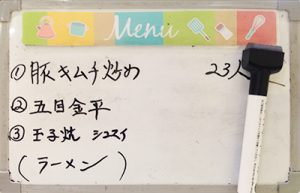 Menu
①豚キムチ炒め 23人
②五目金平
③玉子焼
(ラーメン)